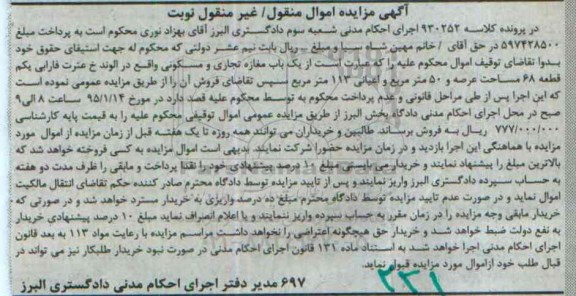 آگهی مزایده اموال منقول/ غیر منقول نوبت
در پرونده کلاسه ۹۳۰۲۵۲ اجرای احکام مدنی شعبه سوم دادگستری البرز آقای بهزاد نوری محکوم است به پرداخت مبلغ
۵۹۷۴۲۸۵۰۰ در حق آقای / خانم مهین شاه سیا و مبلغ - ریال بابت نیم عشر دولتی که محکوم له جهت استیفای حقوق خود
بدوا تقاضای توقیف اموال محکوم علیه را که عبارت است از یک باب مغازه تجاری و مسکونی واقع در الوند خ عترت فارابی یکم
قطعه ۶۸ مساحت عرصه و ۵۰ متر مربع و اعیانی ۱۱۳ متر مربع سپس تقاضای فروش آن را از طریق مزایده عمومی نموده است
که این اجرا پس از طی مراحل قانونی و عدم پرداخت محکوم به توسط محکوم علیه قصد دارد در مورخ ۹۵/۱/۱۴ ساعت ۸ الی ۹
صبح در محل اجرای احکام مدنی دادگاه بخش البرز از طریق مزایده عمومی اموال توقیفی محکوم علیه را به قیمت پایه کارشناسی
۷۷۷/۰۰۰/۰۰۰ ریال به فروش برساند. طالبین و خریداران می توانند همه روزه تا یک هفته قبل از زمان مزایده از اموال مورد
مزایده با هماهنگی این اجرا بازدید و در زمان مزایده حضورا شرکت نمایند. بدیهی است اموال مزایده به کسی فروخته خواهد شد که
بالاترین مبلغ را پیشنهاد نمایند و خریدار می بایستی مبلغ ۱۰ درصد پیشنهادی خود را نقدا پرداخت و مابقی را ظرف مدت دو هفته
به حساب سپرده دادگستری البرز واریز نمایند و پس از تایید مزایده توسط دادگاه محترم صادر کننده حکم تقاضای انتقال مالکیت
اموال نماید و در صورت عدم تایید مزایده توسط دادگاه محترم مبلغ ده درصد واریزی به خریدار مسترد خواهد شد و در صورتی که
خریدار مابقی وجه مزایده را در زمان مقرر به حساب سپرده واریز ننمایند و یا اعلام انصراف نماید مبلغ ۱۰ درصد پیشنهادی خریدار
به نفع دولت ضبط خواهد شد و خریدار حق هیچگونه اعتراضی را نخواهد داشت مراسم مزایده با رعایت مواد ۱۱۳ به بعد قانون
اجرای احکام مدنی اجرا خواهد شد به استناد ماده ۱۳۱ قانون اجرای احکام مدنی در صورت نبود خریدار طلبکار نیز می تواند در
قبال طلب خود از اموال مورد مزایده قبول نماید.
۶۹۷ مدیر دفتر اجرای احکام مدنی دادگستری البرز
۲۳۱